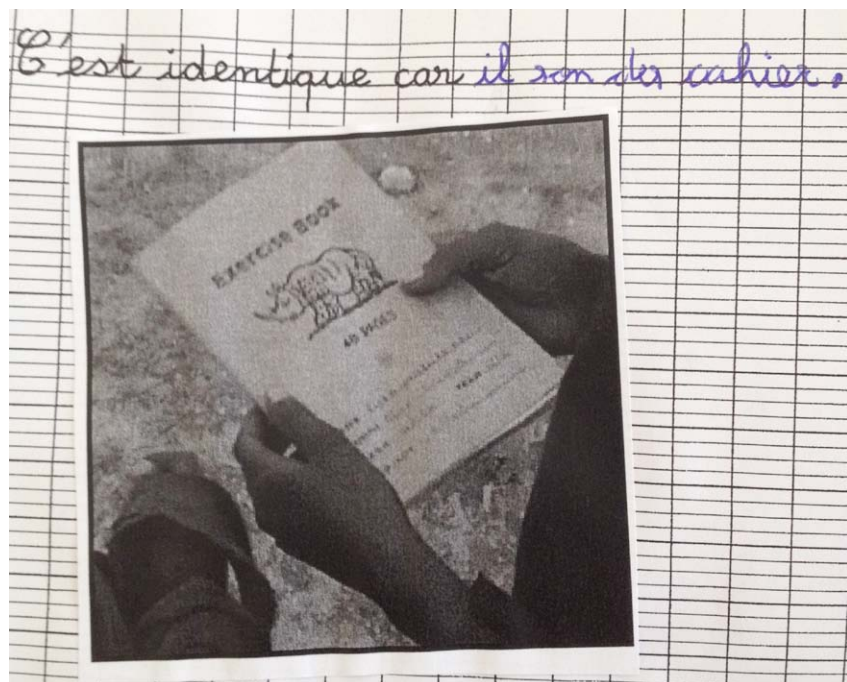 C'est identique car il son des cahier.
Exercise Book
48 PAGES
YEAR